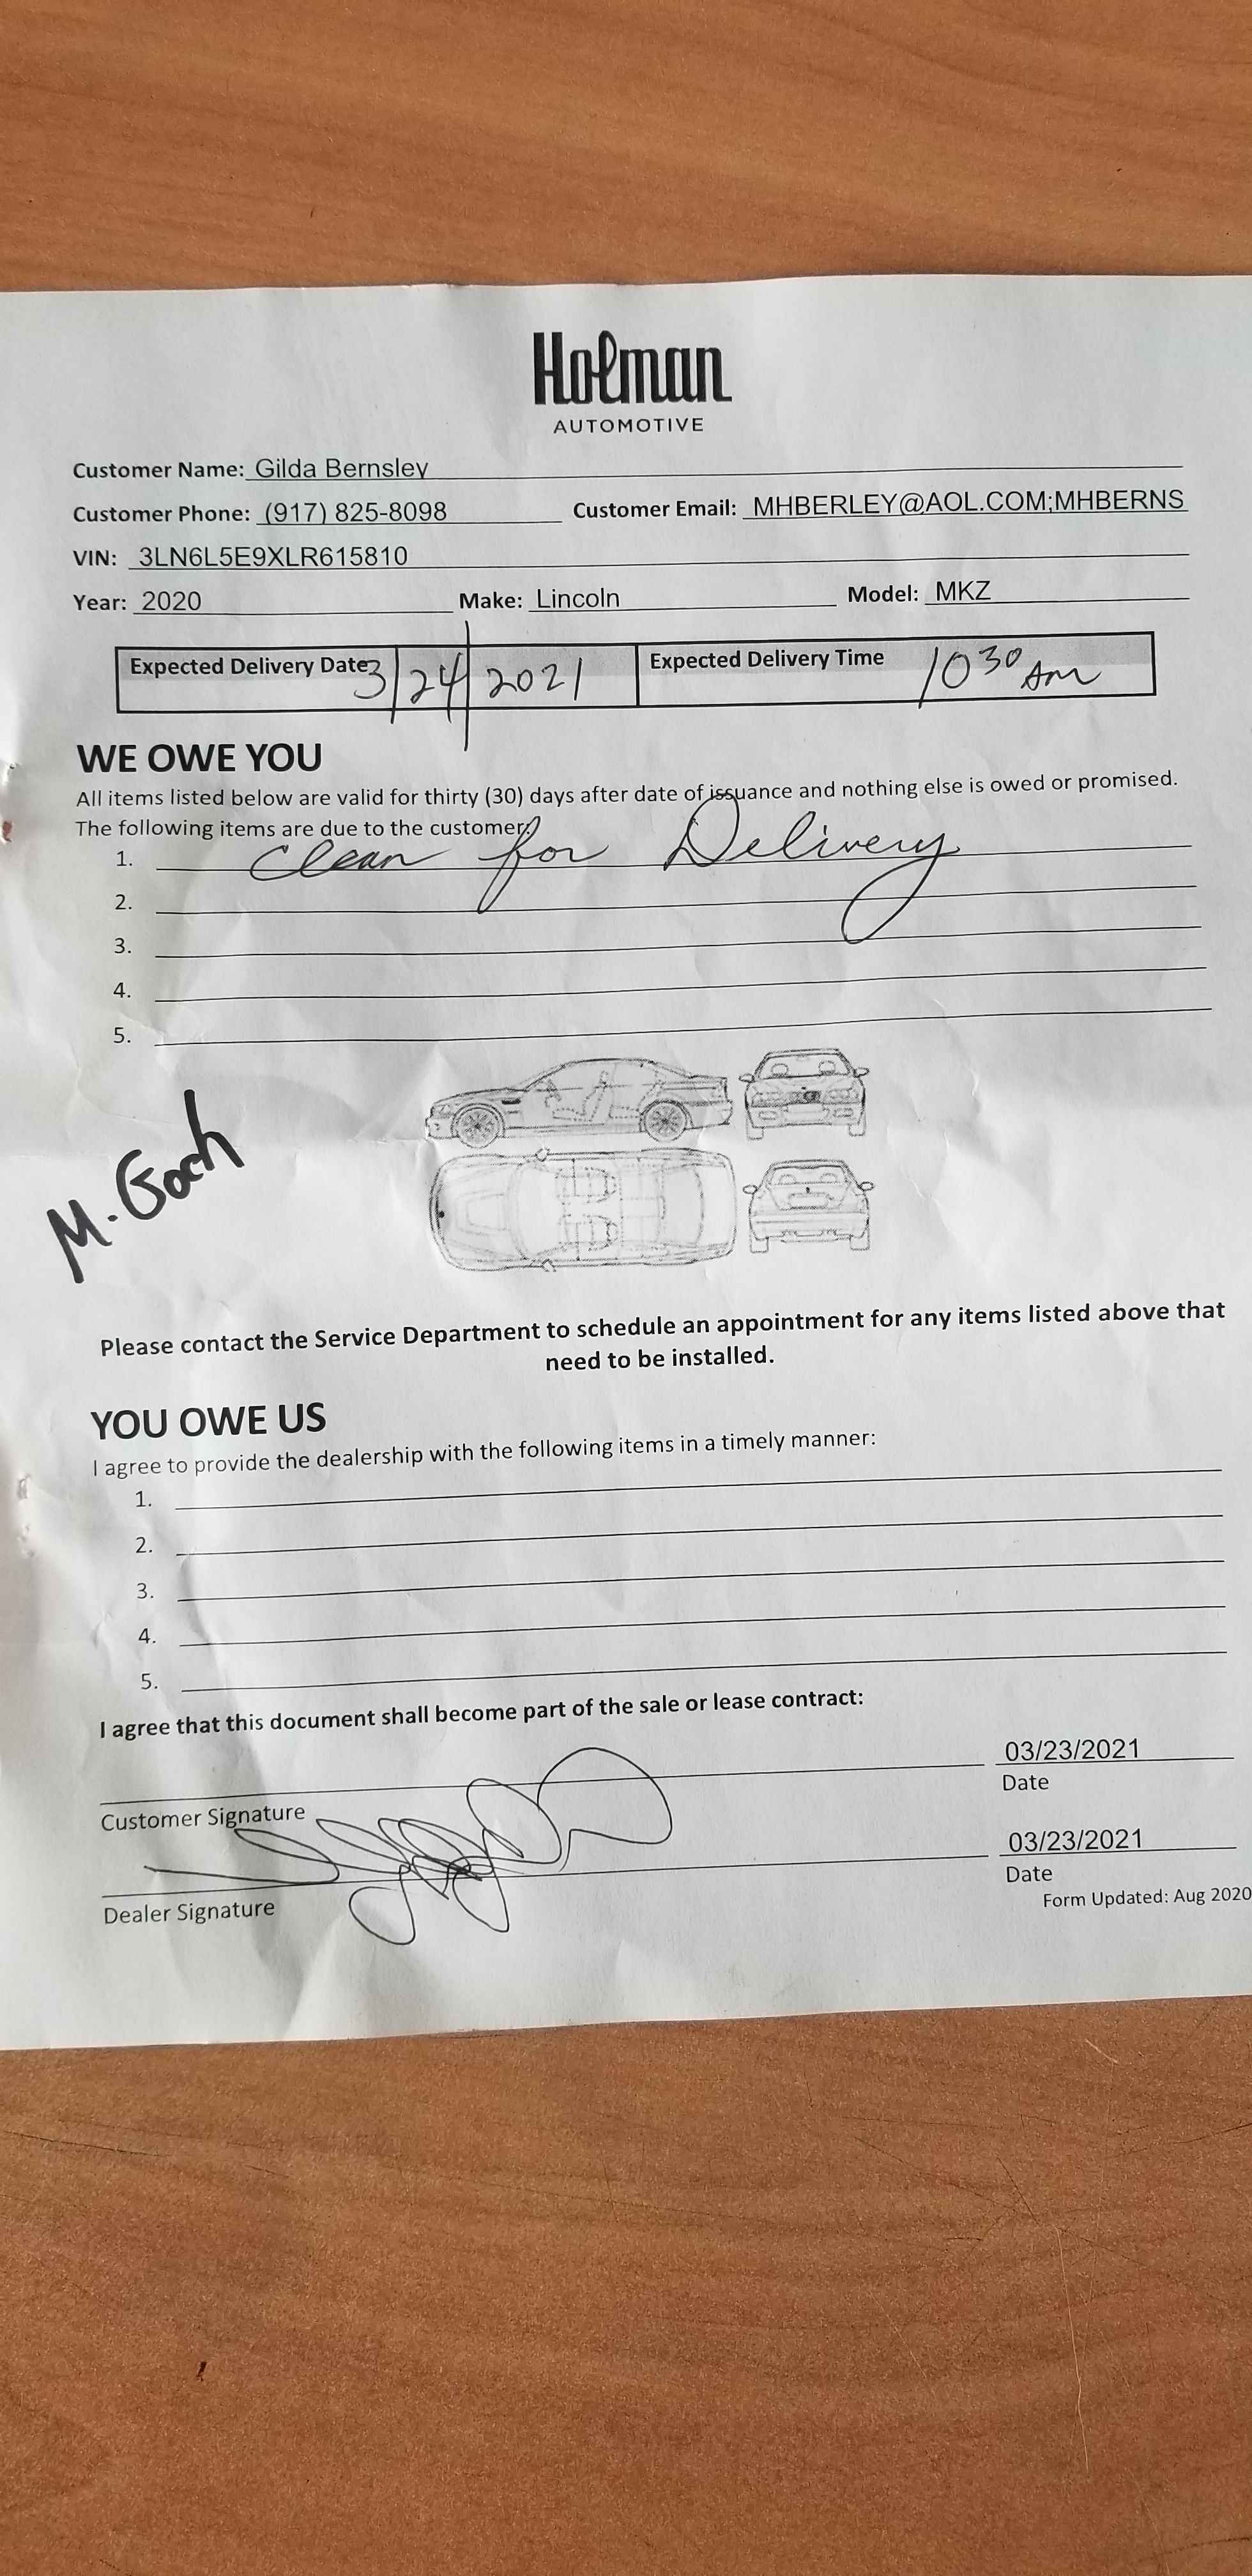 Holman
AUTOMOTIVE
Customer Name: Gilda Bernsley
Customer Phone: (917) 825-8098 Customer Email: MHBERLEY@AOL.COM;MHBERNS
VIN: 3LN6L5E9XLR615810
Year: 2020 Make: Lincoln Model: MKZ
Expected Delivery Date 3/24/2021 Expected Delivery Time 10 30 Am
WE OWE YOU
All items listed below are valid for thirty (30) days after date of issuance and nothing else is owed or promised.
The following items are due to the customer:
1. Clean for Delivery
2.
3.
4.
5.
M. Goch
Please contact the Service Department to schedule an appointment for any items listed above that
need to be installed.
YOU OWE US
I agree to provide the dealership with the following items in a timely manner:
1.
2.
3.
4.
5.
I agree that this document shall become part of the sale or lease contract:
03/23/2021
Customer Signature Date
03/23/2021
Dealer Signature Date
Form Updated: Aug 2020